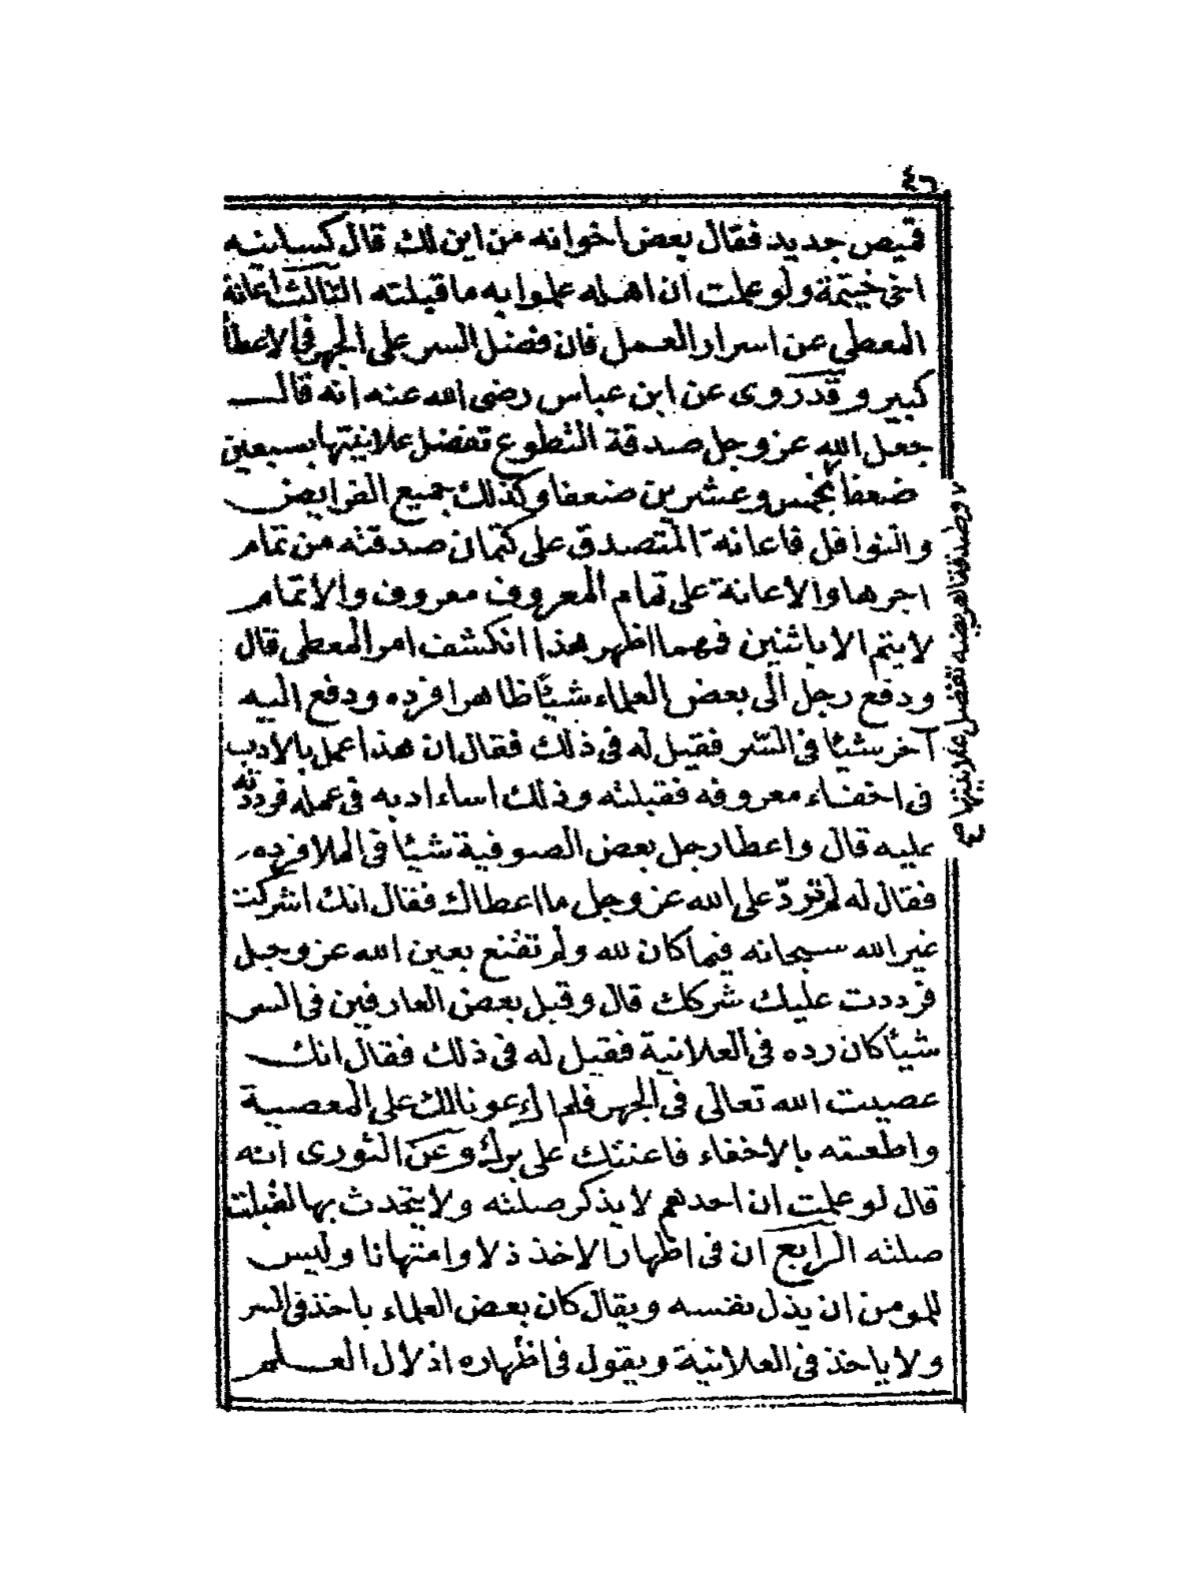 ٤٦
قميص جديد فقال بعض اخوانه من اين لك قال كسانيه
اخي خيثمة ولو علمت ان اهله علموا به ما قبلته الثالث اعانة
المعطي عن اسرار العمل فان فضل السر على الجهر في الاعطأ
كبير و قد روى عن ابن عباس رضى الله عنه انه قال
جعل الله عز وجل صدقة التطوع تفضل علانيتها بسبعين
ضعفا بخمس وعشرين ضعفا وكذلك جميع الفرايض
والنوافل فاعانة المتصدق على كتمان صدقته من تمام
اجرها والاعانة على تمام المعروف معروف والاتمام
لا يتم الا باثنين فمهما اظهر هذا انكشف امر المعطي قال
ودفع رجل الى بعض العلماء شيئا ظاهرا فرده ودفع اليه
آخر شيئا في السّر فقيل له في ذلك فقال ان هذا عمل بالادب
في اخفاء معروفه فقبلته وذلك اساء ادبه في عمله فرددته
عليه قال واعطا رجل بعض الصوفية شيئا في الملا فرده
فقال له لم تردّ على الله عز وجل ما اعطاك فقال انك اشركت
غير الله سبحانه فيما كان لله ولم تقنع بعين الله عز وجل
فرددت عليك شركك قال وقبل بعض العارفين في السر
شيئا كان رده في العلانية فقيل له في ذلك فقال انك
عصيت الله تعالى في الجهر فلم اك عونا لك على المعصية
واطعته بالاخفاء فاعنتك على برك وعن الثورى انه
قال لو علمت ان احدهم لا يذكر صلته ولا يتحدث بها لقبلت
صلته الرابع ان في اظهار الاخذ ذلا وامتهانا وليس
للمومن ان يذل نفسه ويقال كان بعض العلماء ياخذ في السر
ولا ياخذ في العلانية ويقول في اظهاره اذلال العلم
وصدقة الفريضه تفضل علانيتها صح